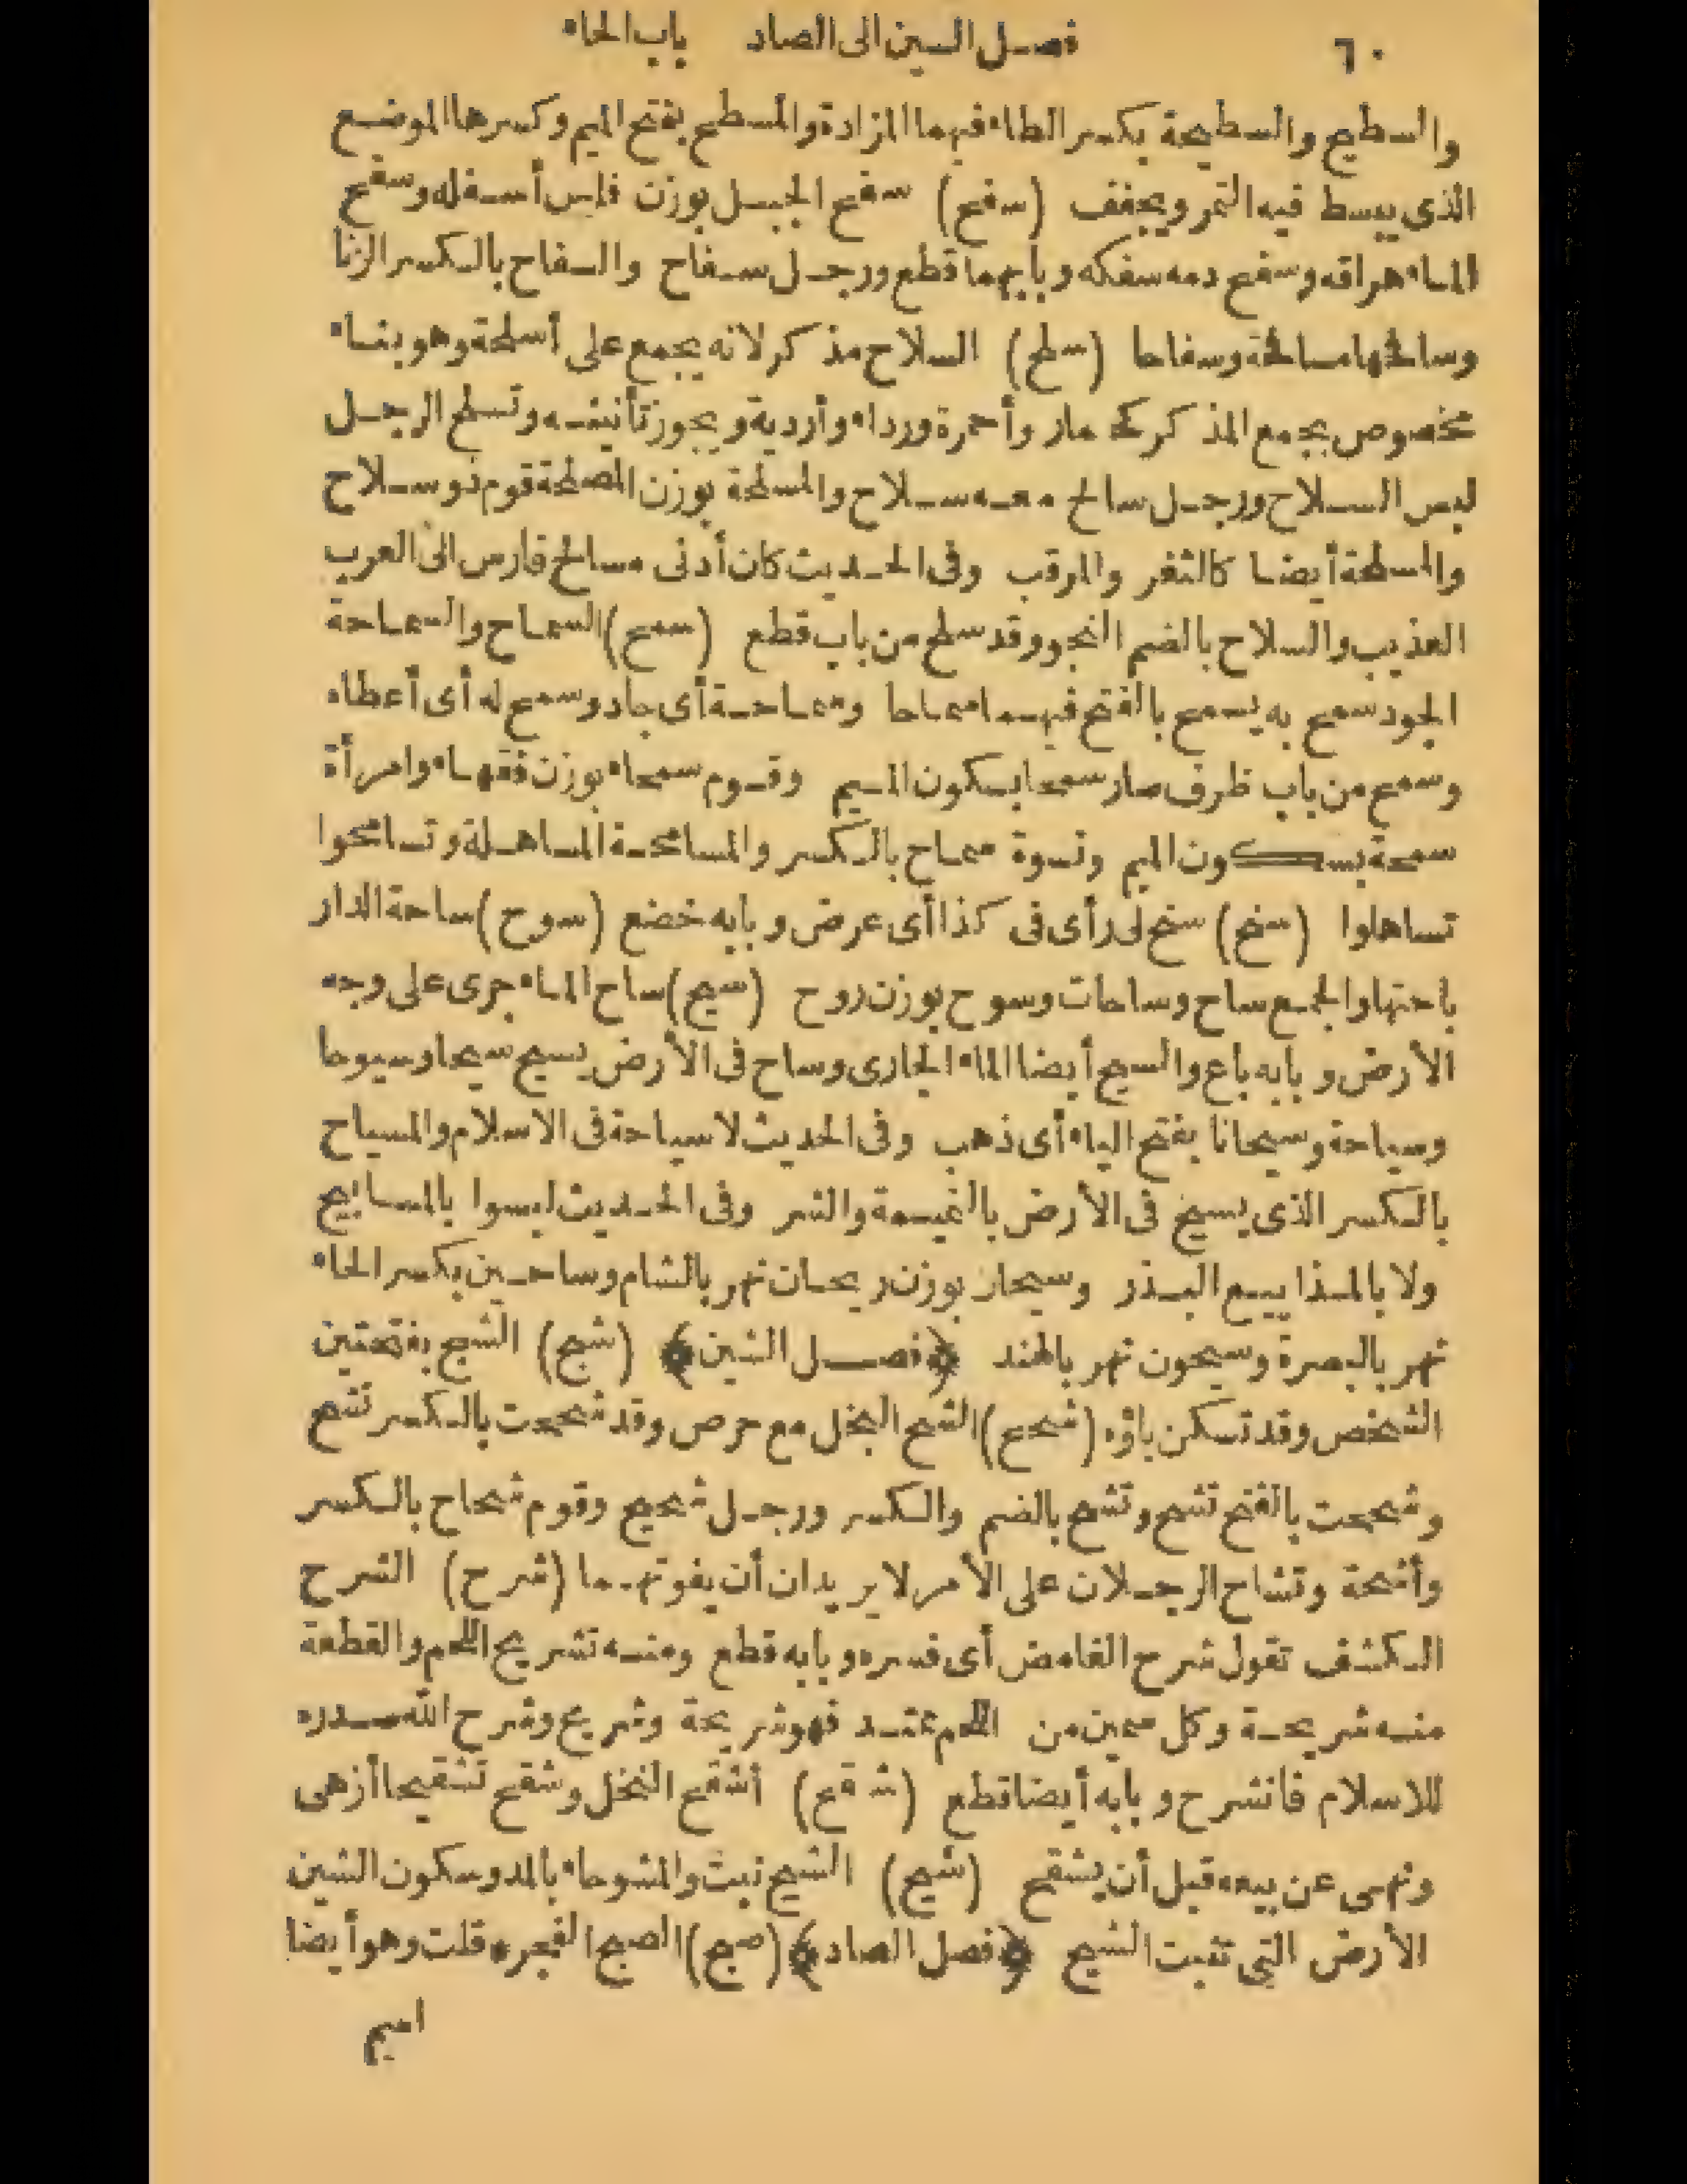 ٦٠ فصل السين الى الصاد باب الحاء
والسطيح والسطيحة بكسر الطاء فيهما المزادة والمسطح بفتح الميم وكسرها الموضع
الذى يبسط فيه التمر ويجفف (سفح) سفح الجبل بوزن فلس أسفله وسفح
الماء هراقه وسفح دمه سفكه وبابهما قطع ورجل سفاح والسفاح بالكسر الزنا
وسافحها مسافحة وسفاحا (سلح) السلاح مذكر لانه يجمع على أسلحة وهو بناء
مخصوص بجمع المذكر كحمار وأحمرة ورداء وأردية ويجوز تأنيثه وتسلح الرجل
لبس السلاح ورجل سالح معه سلاح والمسلحة بوزن المصلحة قوم ذو سلاح
والمسلحة أيضا كالثغر والمرقب وفى الحديث كان أدنى مسالح فارس الى العرب
العذيب والسلاح بالضم النجو وقد سلح من باب قطع (سمح) السماح والسماحة
الجود سمح به يسمح بالفتح فيهما سماحا وسماحة أى جاد وسمح له أى أعطاه
وسمح من باب ظرف صار سمحا بسكون الميم وقوم سمحاء بوزن فقهاء وامرأة
سمحة بسكون الميم ونسوة سماح بالكسر والمسامحة المساهلة وتسامحوا
تساهلوا (سنح) سنح لى رأى فى كذا أى عرض وبابه خضع (سوح) ساحة الدار
باحتها والجمع ساح وساحات وسوح بوزن روح (سيح) ساح الماء جرى على وجه
الأرض وبابه باع والسيح أيضا الماء الجارى وساح فى الأرض يسيح سيحا وسيوحا
وسياحة وسيحانا بفتح الياء أى ذهب وفى الحديث لا سياحة فى الاسلام والمسياح
بالكسر الذى يسيح فى الأرض بالنميمة والشر وفى الحديث ليسوا بالمساييح
ولا بالمذاييع البذر وسيحان بوزن ريحان نهر بالشام وساحين بكسر الحاء
نهر بالبصرة وسيحون نهر بالهند ﴿فصل الشين﴾ (شبح) الشبح بفتحتين
الشخص وقد تسكن باؤه (شحح) الشح البخل مع حرص وقد شححت بالكسر تشح
وشححت بالفتح تشح وتشح بالضم والكسر ورجل شحيح وقوم شحاح بالكسر
وأشحة وتشاح الرجلان على الأمر لا يريدان أن يفوتهما (شرح) الشرح
الكشف تقول شرح الغامض أى فسره وبابه قطع ومنه تشريح اللحم والقطعة
منه شريحة وكل سمين من اللحم ممتد فهو شريحة وشريح وشرح الله صدره
للاسلام فانشرح وبابه أيضا قطع (شقح) أشقح النخل وشقح تشقيحا أزهى
ونهى عن بيعه قبل أن يشقح (شيح) الشيح نبت والمشيوحاء بالمد وسكون الشين
الأرض التى تنبت الشيح ﴿فصل الصاد﴾ (صبح) الصبح الفجر * قلت وهو أيضا
اسم